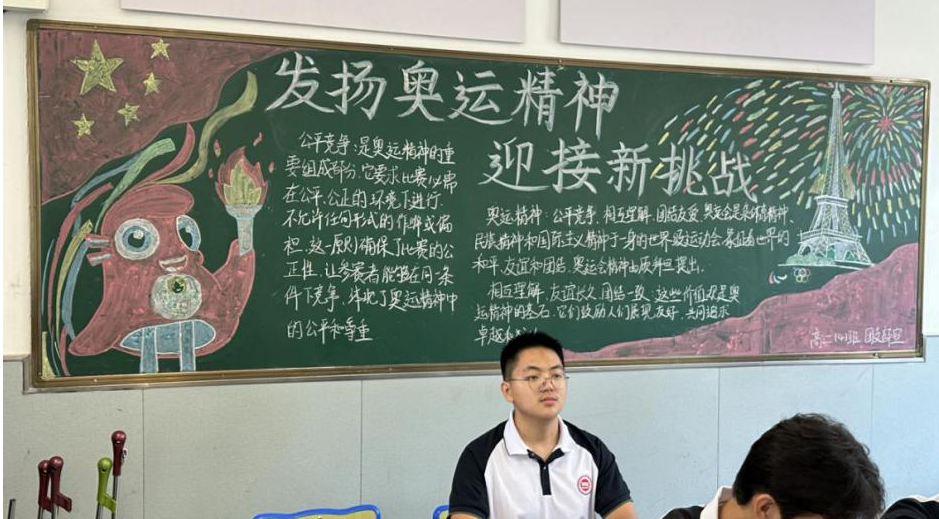 发扬奥运精神
迎接新挑战
公平竞争:是奥运精神的重
要组成部分.它要求比赛必需
在公平.公正的环境下进行.
不允许任何形式的作弊或偏
袒.这一原则确保了比赛的公
正性.让参赛者能够在同一条
件下竞争,体现了奥运精神中
的公平和尊重
奥运精神:公平竞争.相互理解.团结友爱.奥运会是集体育精神、
民族精神和国际主义精神于一身的世界级运动会.象征着世界的
和平、友谊和团结.奥运会精神由顾拜旦提出.
相互理解.友谊长久.团结一致:这些价值观是奥
运精神的基石.它们鼓励人们展现友好、共同追求
卓越
高一 班 团支部宣